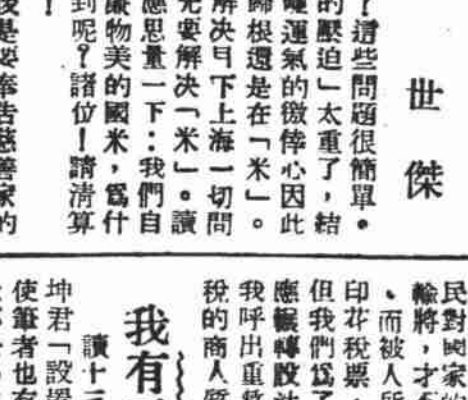 世傑
？這些問題很簡單。
的壓迫」太重了，結
運氣的徼倖心因此
歸根還是在「米」。
解决目下上海一切問
先要解决「米」。讀
應思量一下：我們自
廉物美的國米，爲什
到呢？諸位！請清算
！
後是要奉告慈善家的
民對國家的
輸將，才
、而被人所
印花稅票，
但我們爲了
應輾轉設法
我呼出重
稅的商人
我有
讀十三
坤君「設
使筆者也有